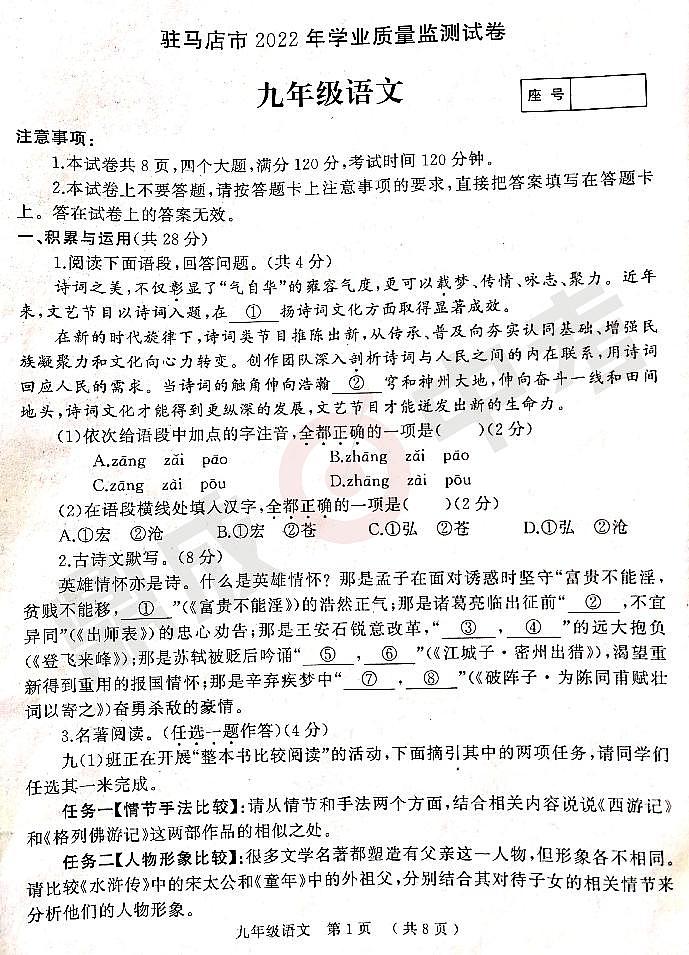 驻马店市 2022 年学业质量监测试卷
九年级语文
座 号
注意事项：
1.本试卷共 8 页,四个大题,满分 120 分,考试时间 120 分钟。
2.本试卷上不要答题,请按答题卡上注意事项的要求,直接把答案填写在答题卡
上。答在试卷上的答案无效。
一、积累与运用(共 28 分)
1.阅读下面语段,回答问题。(共 4 分)
诗词之美,不仅彰显了“气自华”的雍容气度,更可以载梦、传情、咏志、聚力。近年
来,文艺节目以诗词入题,在 ① 扬诗词文化方面取得显著成效。
在新的时代旋律下,诗词类节目推陈出新,从传承、普及向夯实认同基础、增强民
族凝聚力和文化向心力转变。创作团队深入剖析诗词与人民之间的内在联系,用诗词
回应人民的需求。当诗词的触角伸向浩瀚 ② 穹和神州大地,伸向奋斗一线和田间
地头,诗词文化才能得到更纵深的发展,文艺节目才能迸发出新的生命力。
(1)依次给语段中加点的字注音,全都正确的一项是( )(2 分)
A.zāng zǎi pāo B.zhāng zǎi pāo
C.zāng zài pōu D.zhāng zài pōu
(2)在语段横线处填入汉字,全都正确的一项是( )(2 分)
A.①宏 ②沧 B.①宏 ②苍 C.①弘 ②苍 D.①弘 ②沧
2.古诗文默写。(8 分)
英雄情怀亦是诗。什么是英雄情怀？那是孟子在面对诱惑时坚守“富贵不能淫,
贫贱不能移, ① ”(《富贵不能淫》)的浩然正气;那是诸葛亮临出征前“ ② ,不宜
异同”(《出师表》)的忠心劝告;那是王安石锐意改革,“ ③ , ④ ”的远大抱负
(《登飞来峰》);那是苏轼被贬后吟诵“ ⑤ , ⑥ ”(《江城子·密州出猎》),渴望重
新得到重用的报国情怀;那是辛弃疾梦中“ ⑦ , ⑧ ”(《破阵子·为陈同甫赋壮
词以寄之》)奋勇杀敌的豪情。
3.名著阅读。(任选一题作答)(4 分)
九(1)班正在开展“整本书比较阅读”的活动,下面摘引其中的两项任务,请同学们
任选其一来完成。
任务一【情节手法比较】:请从情节和手法两个方面,结合相关内容说说《西游记》
和《格列佛游记》这两部作品的相似之处。
任务二【人物形象比较】:很多文学名著都塑造有父亲这一人物,但形象各不相同。
请比较《水浒传》中的宋太公和《童年》中的外祖父,分别结合其对待子女的相关情节来
分析他们的人物形象。
九年级语文 第 1 页 (共 8 页)